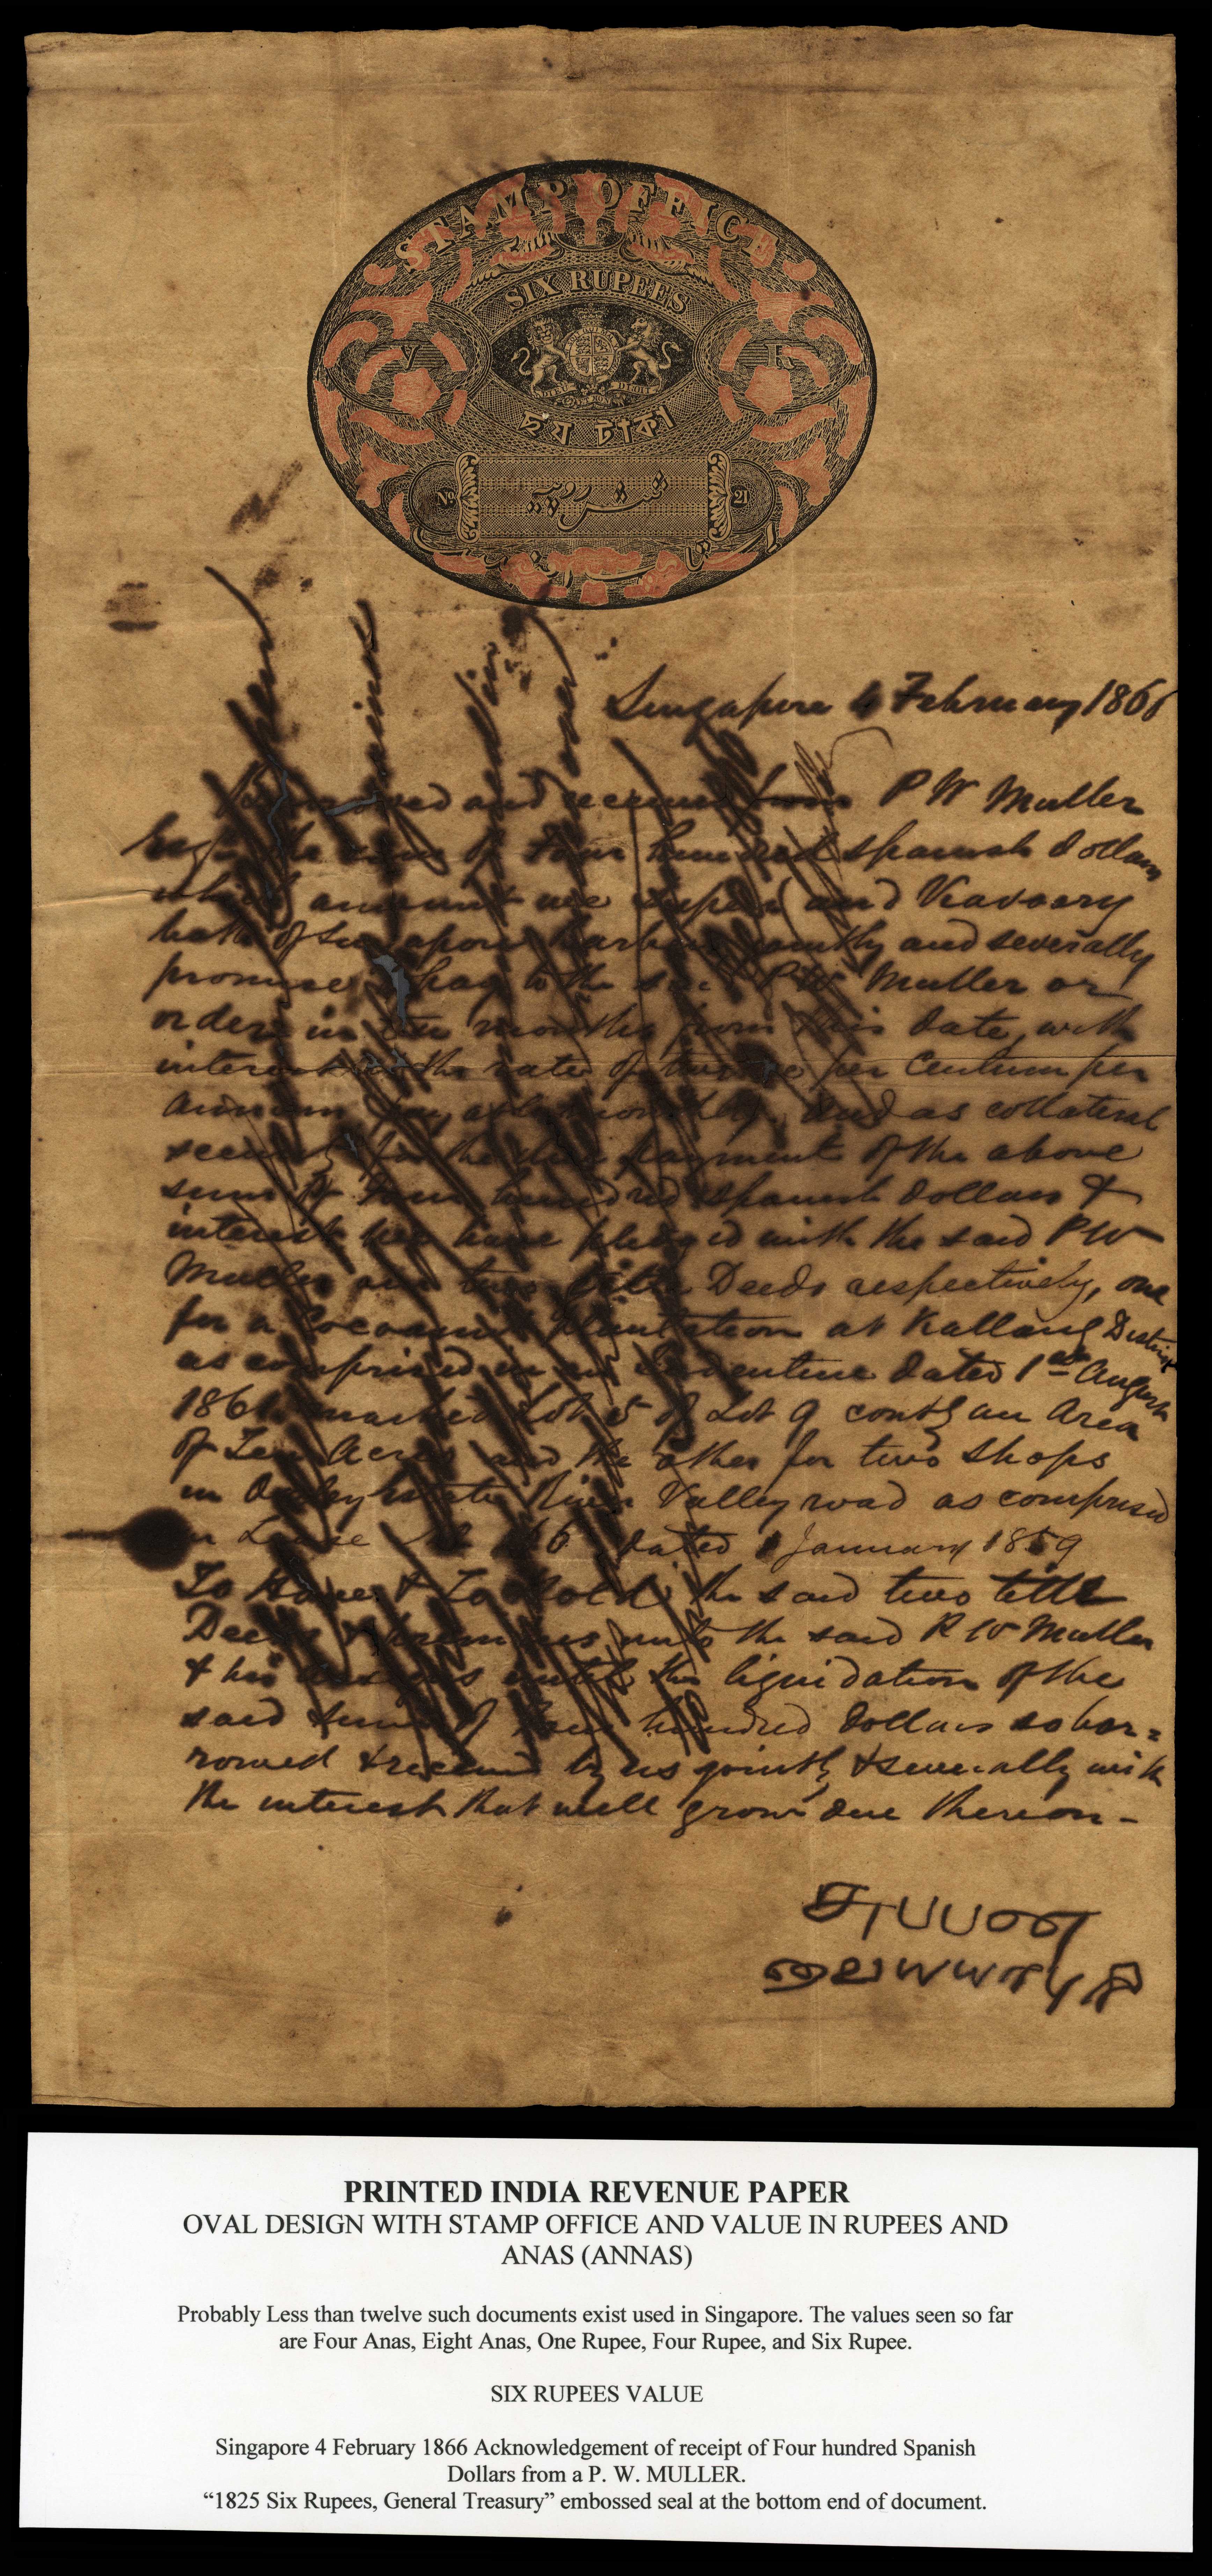 STAMP OFFICE
SIX RUPEES
V R
DIEU ET MON DROIT
ছয টাকা
شش روپیه
No. 21
Singapore 4 February 1866
and received from P W Muller
Esqr the sum of Four hundred spanish dollars
which amount we and
both of Singapore jointly and severally
promise to pay to the said P W Muller or
order in months from this date with
interest at the rate of twelve per Centum per
annum payable monthly, and as collateral
security for the due payment of the above
sum of Four hundred spanish dollars &
interest we have pledged with the said P W
Muller our two title Deeds respectively, one
for a Cocoanut Plantation at Kallang District
as comprised in an Indenture dated 1st August
186 marked Lot 5 of Lot 9 contg an Area
of Ten Acres and the other for two shops
in Oxley Estate River Valley road as comprised
in Lease dated 1 January 1859
To Have & To Hold the said two title
Deeds & premises unto the said P W Muller
& his assigns until the liquidation of the
said sum of Four hundred dollars so bor=
rowed & received by us jointly & severally with
the interest that will grow due thereon -
PRINTED INDIA REVENUE PAPER
OVAL DESIGN WITH STAMP OFFICE AND VALUE IN RUPEES AND
ANAS (ANNAS)
Probably Less than twelve such documents exist used in Singapore. The values seen so far
are Four Anas, Eight Anas, One Rupee, Four Rupee, and Six Rupee.
SIX RUPEES VALUE
Singapore 4 February 1866 Acknowledgement of receipt of Four hundred Spanish
Dollars from a P. W. MULLER.
“1825 Six Rupees, General Treasury” embossed seal at the bottom end of document.